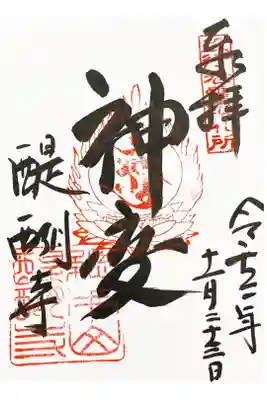 奉拝
神変
醍醐寺
令和二年
十一月二十三日